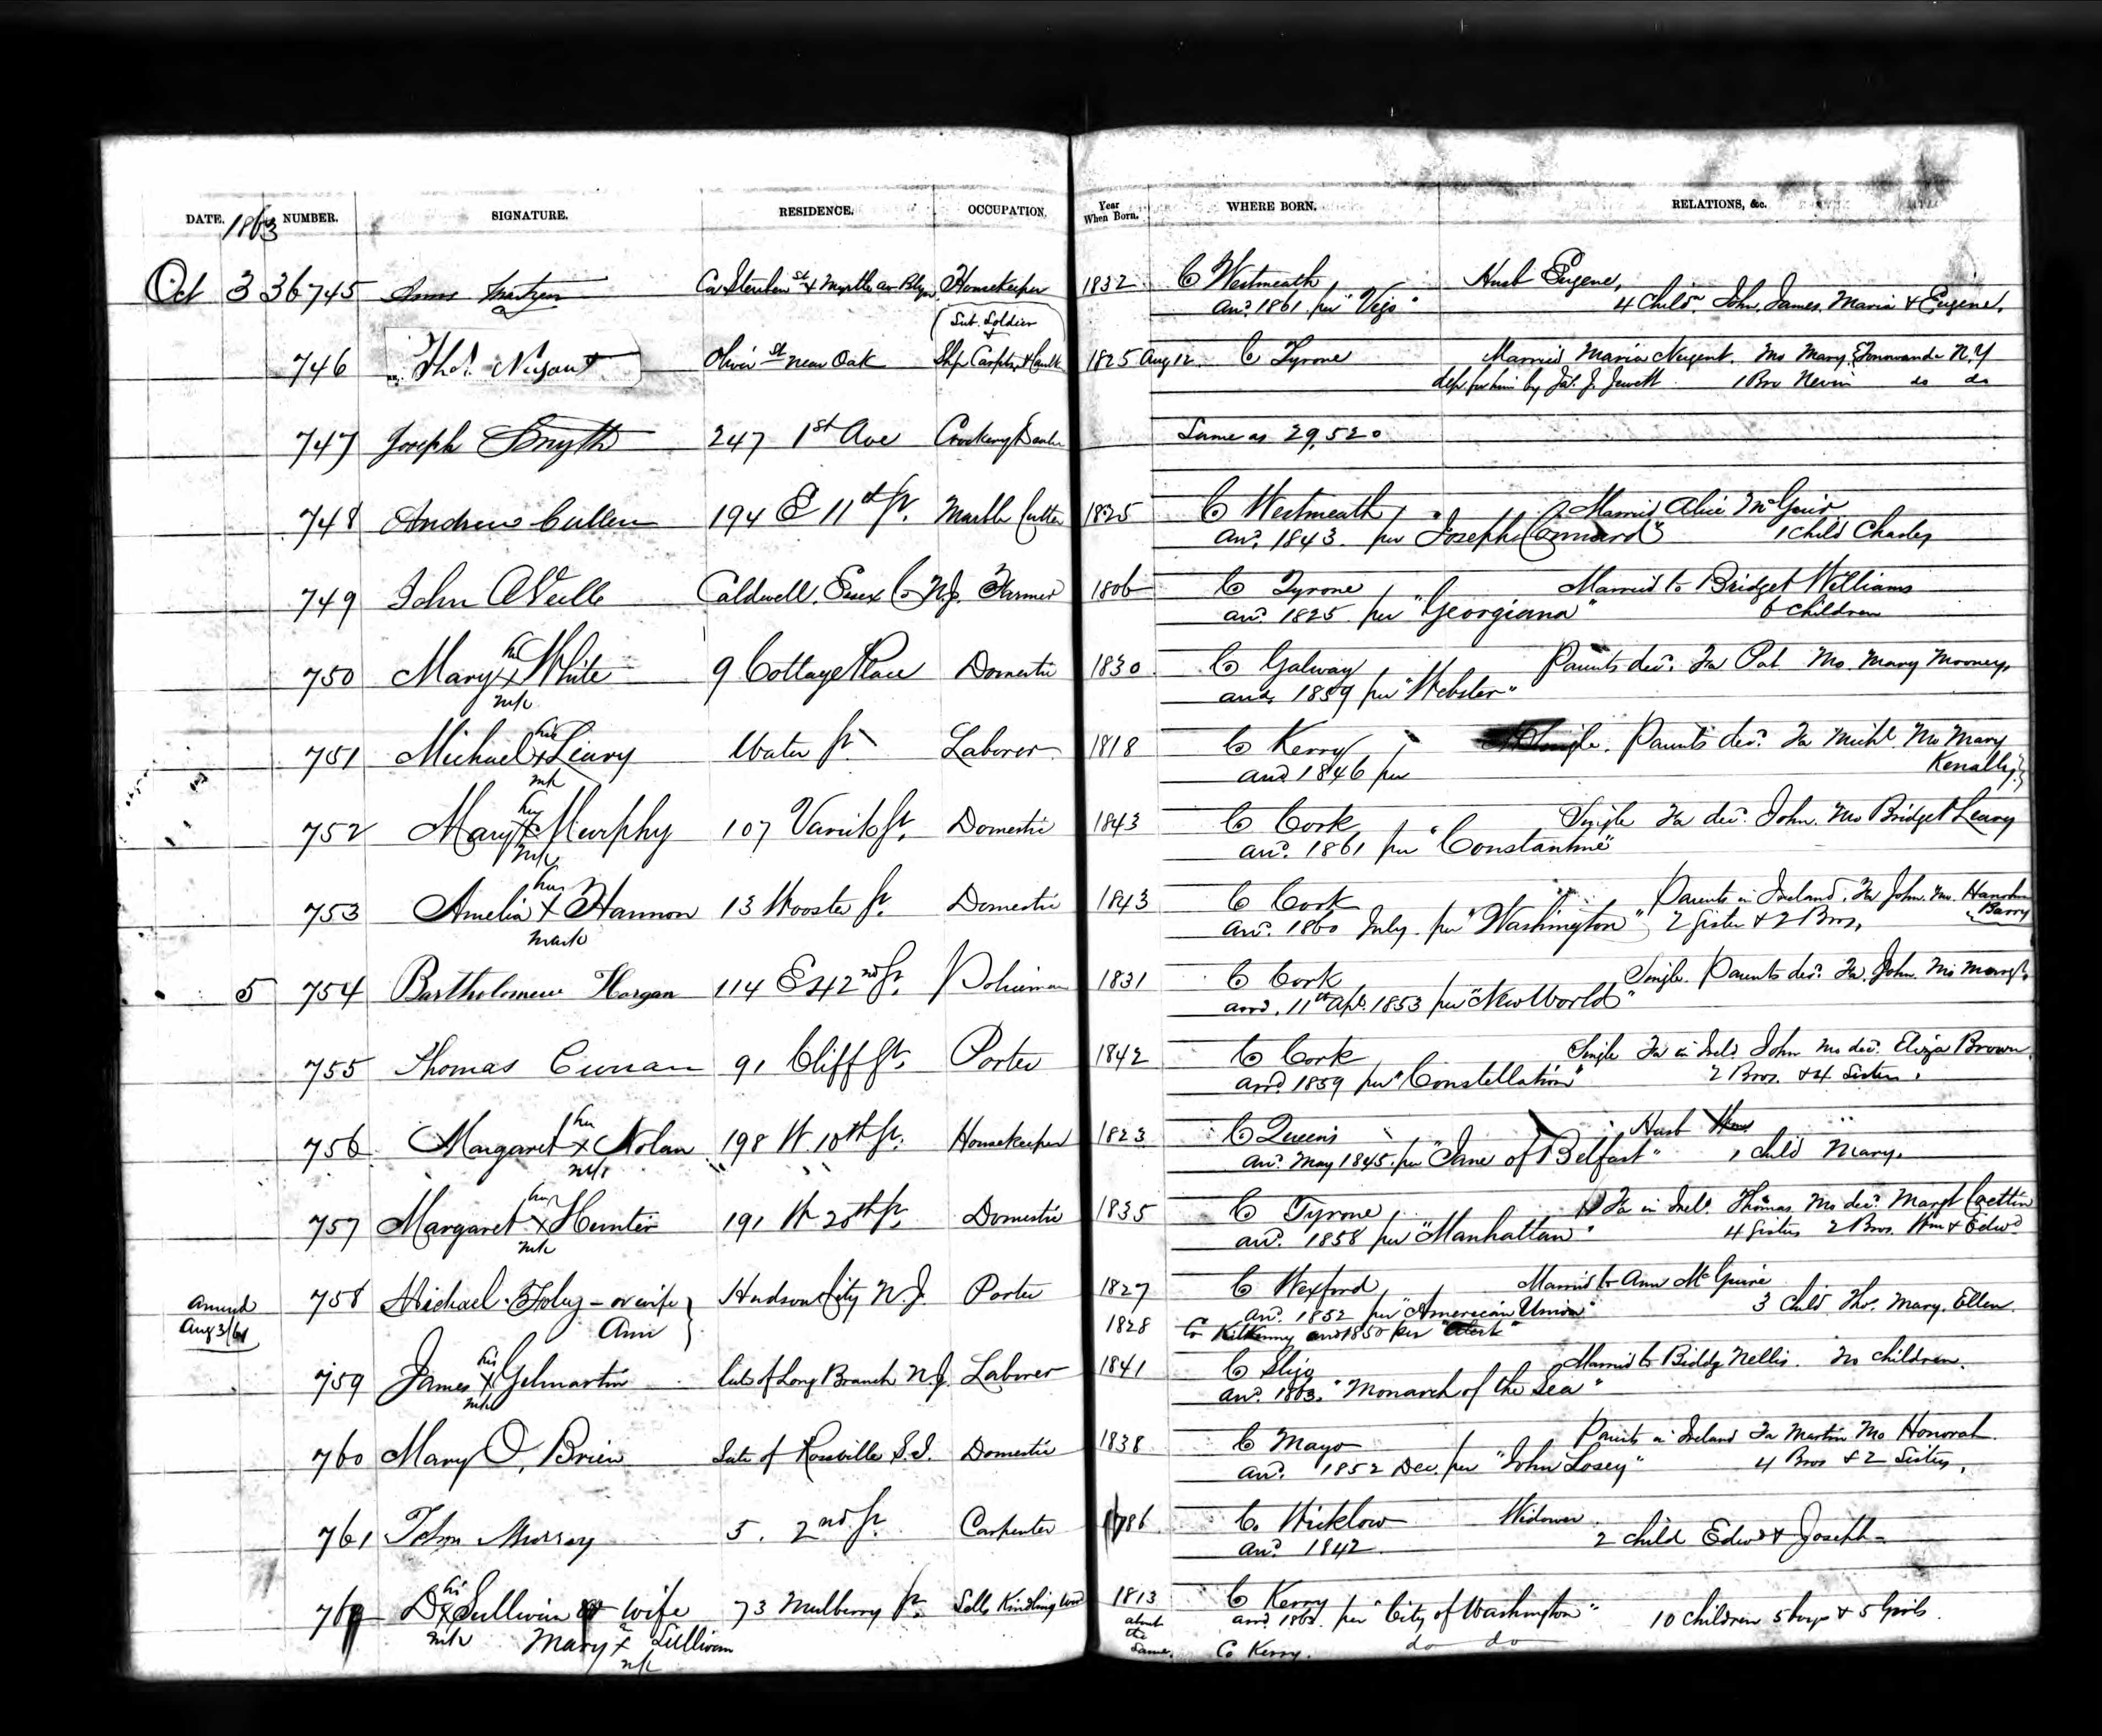 DATE. 1863 NUMBER. SIGNATURE. RESIDENCE. OCCUPATION. Year When Born. WHERE BORN. RELATIONS, &c.
Oct 3 36745 Cor Steuben st & Myrtle av Bklyn Housekeeper 1832 Co Westmeath Husb Eugene,
arr. 1861 per "Vigo" 4 Child. John, James, Maria & Eugene.
(Sub. Soldier
746 Thos. Nugent Oliver st near Oak Ship Carptr & Caulk 1825 Aug 12 Co Tyrone Married Maria Nugent. Mo Mary, Tonawanda N.Y
dep. for him by Jas. J. Jewett 1 Bro Nevin do do
747 Joseph Smyth 247 1st Ave Crockery Dealer Same as 29,520
748 Andrew Cullen 194 E 11th st. Marble Cutter 1825 Co Westmeath Married Alice McGuir
arr. 1843. per "Joseph Cunnard" 1 child Charles
749 John Caldwell, Essex Co N.J. Farmer 1806 Co Tyrone Married to Bridget Williams
arr. 1825 per "Georgiana" 6 children
750 Mary her x mk White 9 Cottage Place Domestic 1830 Co Galway Parents dec. Fa Pat Mo. Mary Mooney.
arrd. 1859 per "Webster"
751 Michael his x mk Leary Water st. Laborer 1818 Co Kerry Single. Parents dec. Fa Michl. Mo Mary
arrd 1846 per Kenally
752 Mary her x mk Murphy 107 Varick st. Domestic 1843 Co Cork Single Fa dec. John. Mo Bridget Leary
arr. 1861 per "Constantine"
753 Amelia her x mark Hannon 13 Wooster st. Domestic 1843 Co Cork Parents in Ireland. Fa John. Mo. Hanorhan
arr. 1860 July. per "Washington" 2 Sister & 2 Bros, Barry
5 754 Bartholomew Horgan 114 E 42nd st. Policeman 1831 Co Cork Single. Parents dec. Fa. John. Mo Margt.
arrd. 11th Apl. 1853 per "New World"
755 Thomas Curran 91 Cliff St. Porter 1842 Co Cork Single Fa in Ireld John Mo dec. Eliza Brown
arrd 1859 per "Constellation" 2 Bros. & 4 Sisters.
756 Margaret her x mk Nolan 198 W. 10th st. Housekeeper 1823 Co Queens Husb
arr. May 1845. per "Jane of Belfast" 1 child Mary.
757 Margaret her x mk Hunter 191 W 20th st. Domestic 1835 Co Tyrone Fa in Irel. Thomas Mo dec. Margt
arr. 1858 per "Manhattan" 4 Sisters 2 Bros. Wm & Edwd
Amend Aug 3/61 758 Michael Foley - or wife Ann Hudson City N.J. Porter 1827 Co Wexford Married to Ann McGuire
arr. 1852 per "American Union" 3 Child Tho. Mary. Ellen.
1828 Co Kilkenny arrd 1850 per "Alert"
759 James his x mk Gilmartin Out of Long Branch N.J. Laborer 1841 Co Sligo Married to Biddy Nellis. No children.
arr. 1863. "Monarch of the Sea"
760 Mary O, Brien Late of Rossville S.I. Domestic 1838 Co Mayo Parents in Ireland Fa Martin Mo Honorah.
arr. 1852 Dec. per "John Losey" 4 Bros & 2 Sisters.
761 John Murray 5. 2nd st. Carpenter 1786 Co. Wicklow Widower.
arr. 1842 2 child Edwd & Joseph
762 D his x mk Sullivan or wife 73 Mulberry st. Sells Kindling wood 1813 Co Kerry
arrd. per "City of Washington" 10 children 5 boys & 5 Girls.
Mary x mk Sullivan about the same. Co Kerry. do do